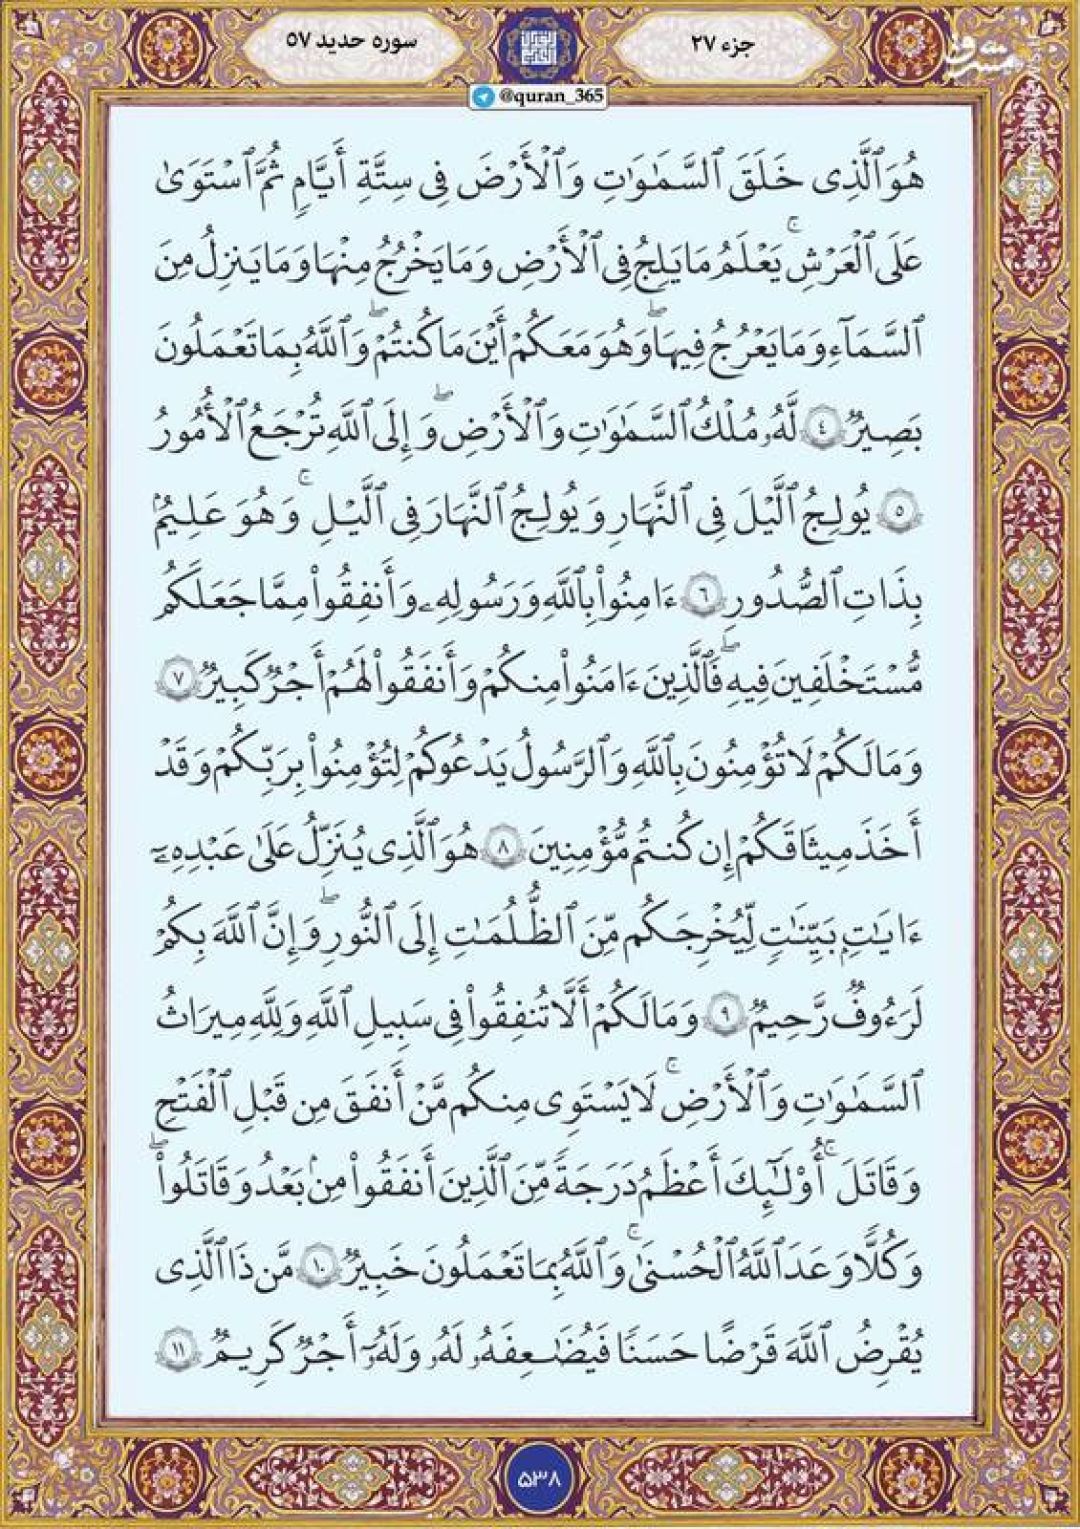 جزء ۲۷
سوره حدید ۵۷
@quran_365
هُوَ ٱلَّذِى خَلَقَ ٱلسَّمَٰوَٰتِ وَٱلْأَرْضَ فِى سِتَّةِ أَيَّامٍ ثُمَّ ٱسْتَوَىٰ
عَلَى ٱلْعَرْشِ ۚ يَعْلَمُ مَا يَلِجُ فِى ٱلْأَرْضِ وَمَا يَخْرُجُ مِنْهَا وَمَا يَنزِلُ مِنَ
ٱلسَّمَآءِ وَمَا يَعْرُجُ فِيهَا ۖ وَهُوَ مَعَكُمْ أَيْنَ مَا كُنتُمْ ۖ وَٱللَّهُ بِمَا تَعْمَلُونَ
بَصِيرٌ ٤ لَّهُۥ مُلْكُ ٱلسَّمَٰوَٰتِ وَٱلْأَرْضِ ۖ وَإِلَى ٱللَّهِ تُرْجَعُ ٱلْأُمُورُ
٥ يُولِجُ ٱلَّيْلَ فِى ٱلنَّهَارِ وَيُولِجُ ٱلنَّهَارَ فِى ٱلَّيْلِ ۚ وَهُوَ عَلِيمٌۢ
بِذَاتِ ٱلصُّدُورِ ٦ ءَامِنُوا۟ بِٱللَّهِ وَرَسُولِهِۦ وَأَنفِقُوا۟ مِمَّا جَعَلَكُم
مُّسْتَخْلَفِينَ فِيهِ ۖ فَٱلَّذِينَ ءَامَنُوا۟ مِنكُمْ وَأَنفَقُوا۟ لَهُمْ أَجْرٌ كَبِيرٌ ٧
وَمَا لَكُمْ لَا تُؤْمِنُونَ بِٱللَّهِ ۙ وَٱلرَّسُولُ يَدْعُوكُمْ لِتُؤْمِنُوا۟ بِرَبِّكُمْ وَقَدْ
أَخَذَ مِيثَٰقَكُمْ إِن كُنتُم مُّؤْمِنِينَ ٨ هُوَ ٱلَّذِى يُنَزِّلُ عَلَىٰ عَبْدِهِۦٓ
ءَايَٰتٍۭ بَيِّنَٰتٍ لِّيُخْرِجَكُم مِّنَ ٱلظُّلُمَٰتِ إِلَى ٱلنُّورِ ۚ وَإِنَّ ٱللَّهَ بِكُمْ
لَرَءُوفٌ رَّحِيمٌ ٩ وَمَا لَكُمْ أَلَّا تُنفِقُوا۟ فِى سَبِيلِ ٱللَّهِ وَلِلَّهِ مِيرَٰثُ
ٱلسَّمَٰوَٰتِ وَٱلْأَرْضِ ۚ لَا يَسْتَوِى مِنكُم مَّنْ أَنفَقَ مِن قَبْلِ ٱلْفَتْحِ
وَقَٰتَلَ ۚ أُو۟لَٰٓئِكَ أَعْظَمُ دَرَجَةً مِّنَ ٱلَّذِينَ أَنفَقُوا۟ مِنۢ بَعْدُ وَقَٰتَلُوا۟ ۚ
وَكُلًّا وَعَدَ ٱللَّهُ ٱلْحُسْنَىٰ ۚ وَٱللَّهُ بِمَا تَعْمَلُونَ خَبِيرٌ ١٠ مَّن ذَا ٱلَّذِى
يُقْرِضُ ٱللَّهَ قَرْضًا حَسَنًا فَيُضَٰعِفَهُۥ لَهُۥ وَلَهُۥٓ أَجْرٌ كَرِيمٌ ١١
۵۳۸